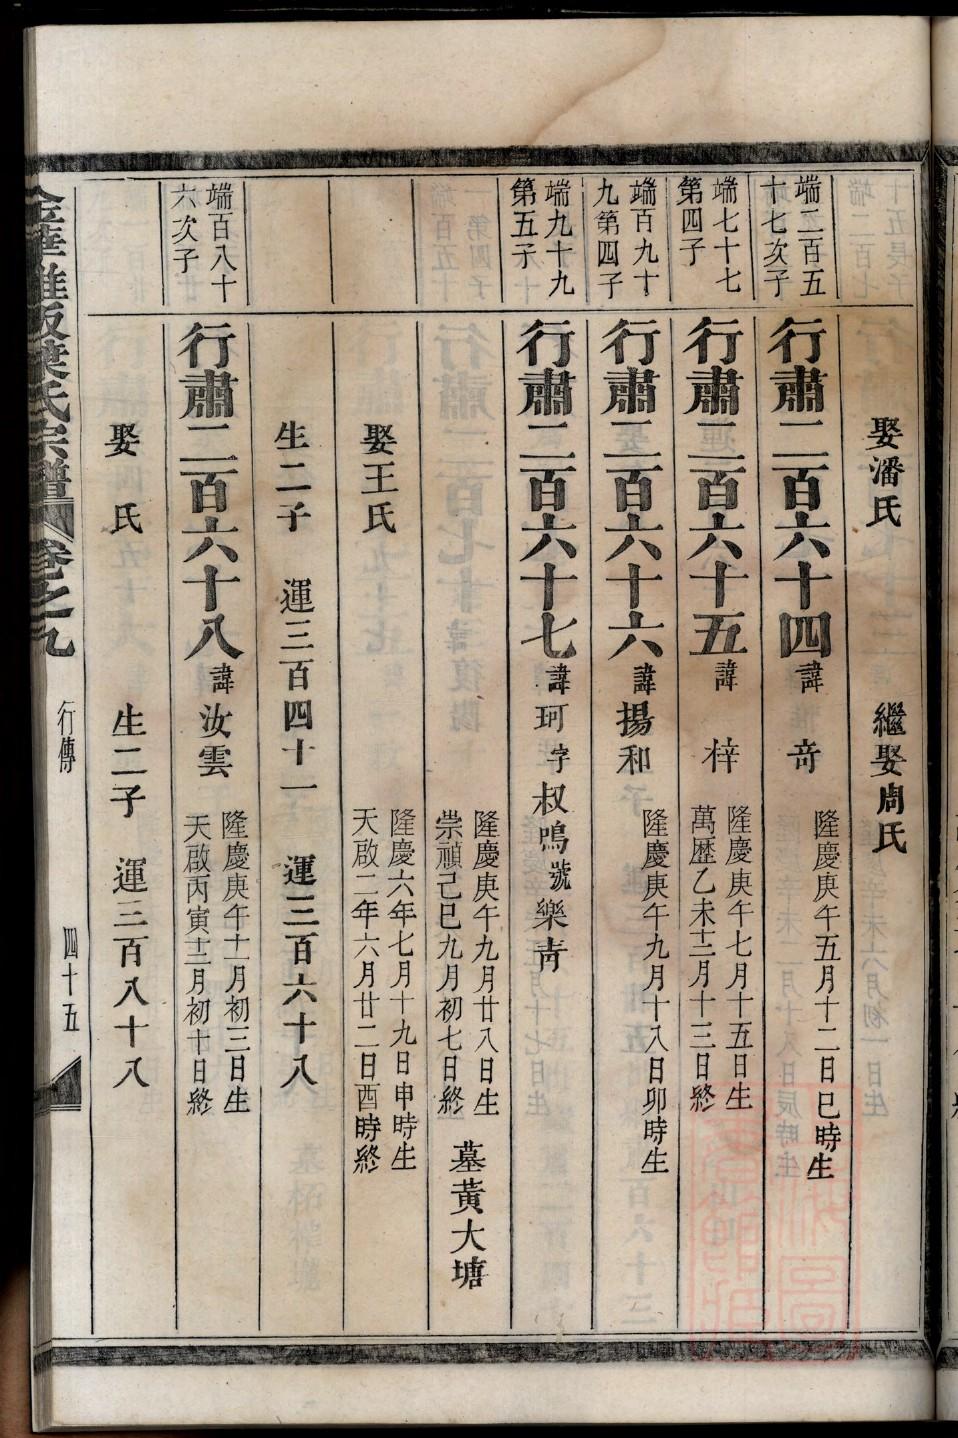 娶潘氏 繼娶周氏
端二百五十七次子
行肅二百六十四 諱 奇 隆慶庚午五月十二日巳時生
端七十七第四子
行肅二百六十五 諱 梓 隆慶庚午七月十五日生 萬歷乙未十二月十三日終
端百九十九第四子
行肅二百六十六 諱揚和 隆慶庚午九月十八日卯時生
端九十九第五子
行肅二百六十七 諱珂字叔鳴號樂靑
隆慶庚午九月廿八日生 崇禎己巳九月初七日終 墓黃大塘
娶王氏 隆慶六年七月十九日申時生 天啟二年六月廿二日酉時終
生二子 運三百四十一 運三百六十八
端百八十六次子
行肅二百六十八 諱汝雲 隆慶庚午十一月初三日生 天啟丙寅十二月初十日終
娶 氏 生二子 運三百八十八
葉氏宗譜 卷之九 行傳 四十五